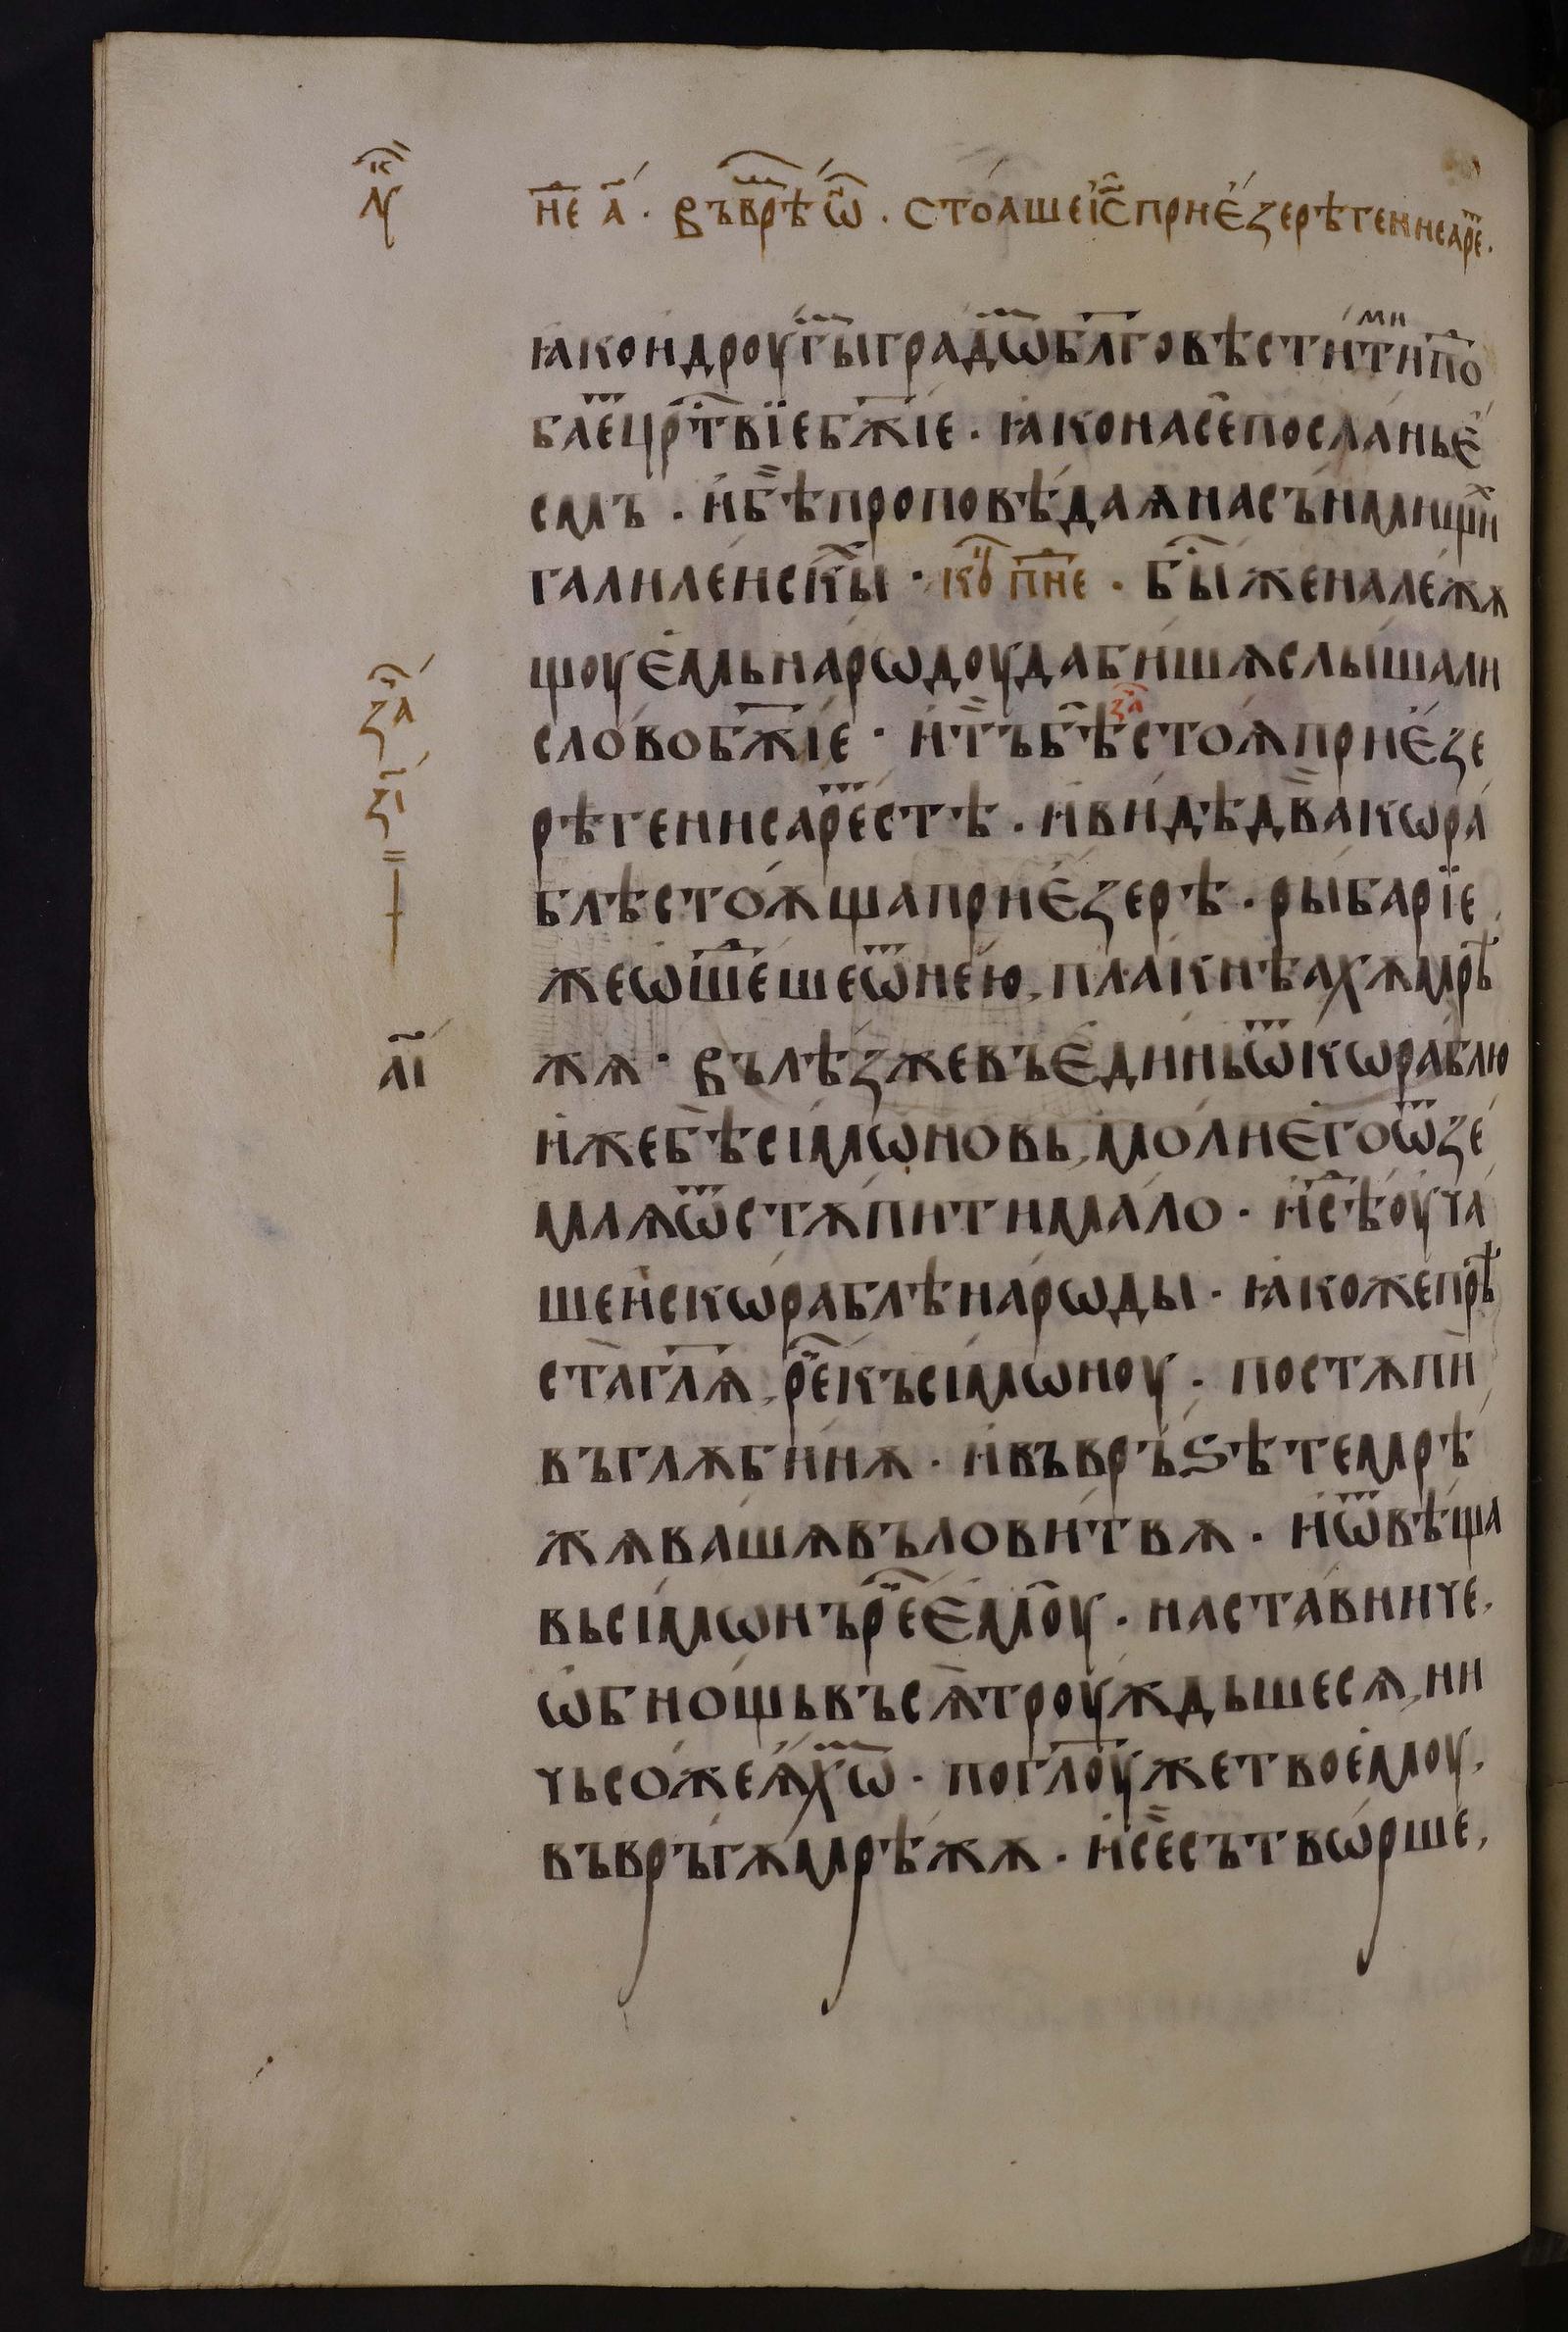 л҃ꙋ
не҃ а҃ · Въврѣ ѡ҃ · стоаше і҃с при е́зерѣ геннеаре ·
ꙗко и дроугы градѡ бл҃говѣстити ми по҃
бае црт҃вїе бж҃їе · ꙗко на се посланъ е́
смъ · и бѣ проповѣдаѧ на сънмищи
галилеискы · ко҃ пне · бы же належѫ
щоу ємꙋ нарѡдоу да бишѫ слышали
слово бж҃їе · и тъ бѣ стоѧ при е́зе
за҃
рѣ генисаре́стѣ · и видѣ два кѡра
блѣ стоѧща при е́зерѣ · рыбарїе
же ѡше́ше ѿ нею, плакнѣахѫ мрѣ
жѧ · Вълѣз же въ единь ѿ кѡраблю
иже бѣ сімѡновь, моли его ѿ зе
млѧ ѿстѫпити мало · и сѣ оуча
ше ис кѡраблѣ нарѡды · ꙗкоже прѣ
ста гл҃ѧ, ре къ сімѡноу · постѫпи
въ глѫбинѫ · и въвръѕѣте мрѣ
жѧ вашѧ въ ловитвѫ · и ѿвѣща
вь сімѡнъ ре емоу · наставниче,
ѡб нощь въсѫ троуждьшесѧ, ни
чьсоже ѧхѡ · по гл҃оу же твоемоу,
въвръгѫ мрѣжѫ · и се сътвѡрше,
за҃
зі҃
аі҃